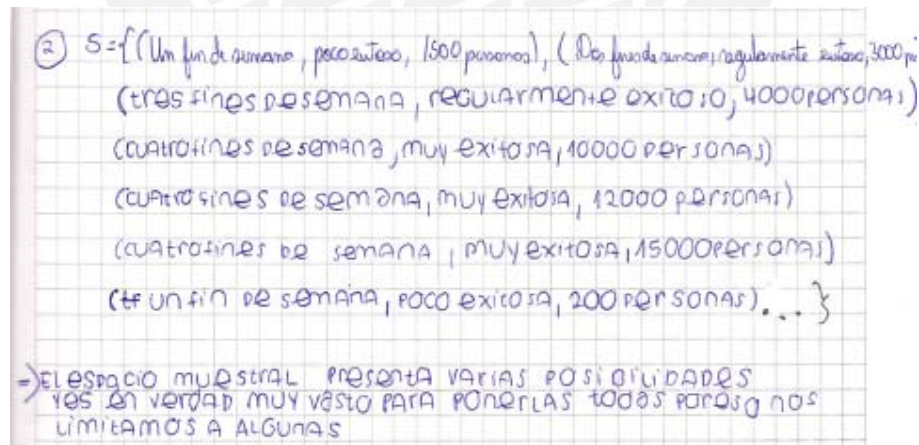 ② S={(Un fin de semana, poco exitoso, 1500 personas), (Dos fines de semana, regularmente exitoso, 3000 p
(tres fines de semana, regularmente exitoso, 4000 personas)
(cuatro fines de semana, muy exitosa, 10000 personas)
(cuatro fines de semana, muy exitosa, 12000 personas)
(cuatro fines de semana, muy exitosa, 15000 personas)
(un fin de semana, poco exitosa, 200 personas)...}
⇒) El espacio muestral presenta varias posibilidades
y es en verdad muy vasto para ponerlas todas por eso nos
limitamos a algunas